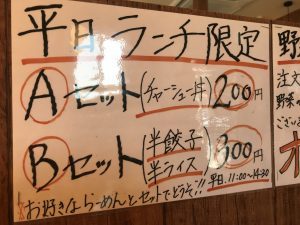 平日ランチ限定
Aセット(チャーシュー丼)200円
Bセット(半餃子 半ライス)300円
お好きならーめんとセットでどうぞ!! 平日11:00〜14:30
野
注文
野菜
ござい